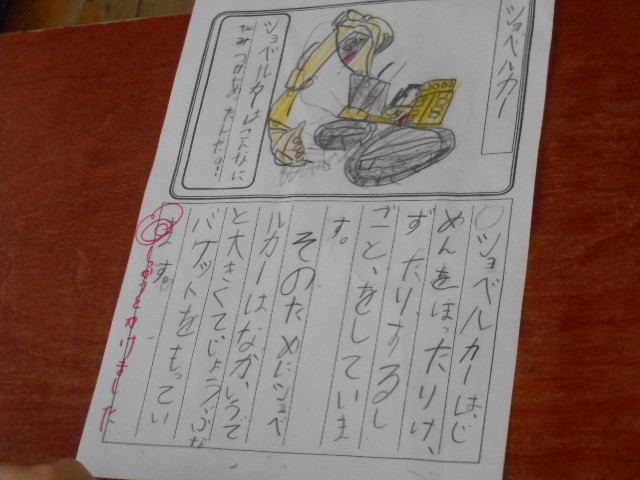 ショベルカー
ショベルカーはこんなに
○ショベルカーは、じ
めんをほったりけ、
ず、たりするし
ごと、をしていま
す。
そのためにショベ
ルカーはなかいうで
と大きくてじょうぶな
バケットをもってい
ます。
しっかりとかけました